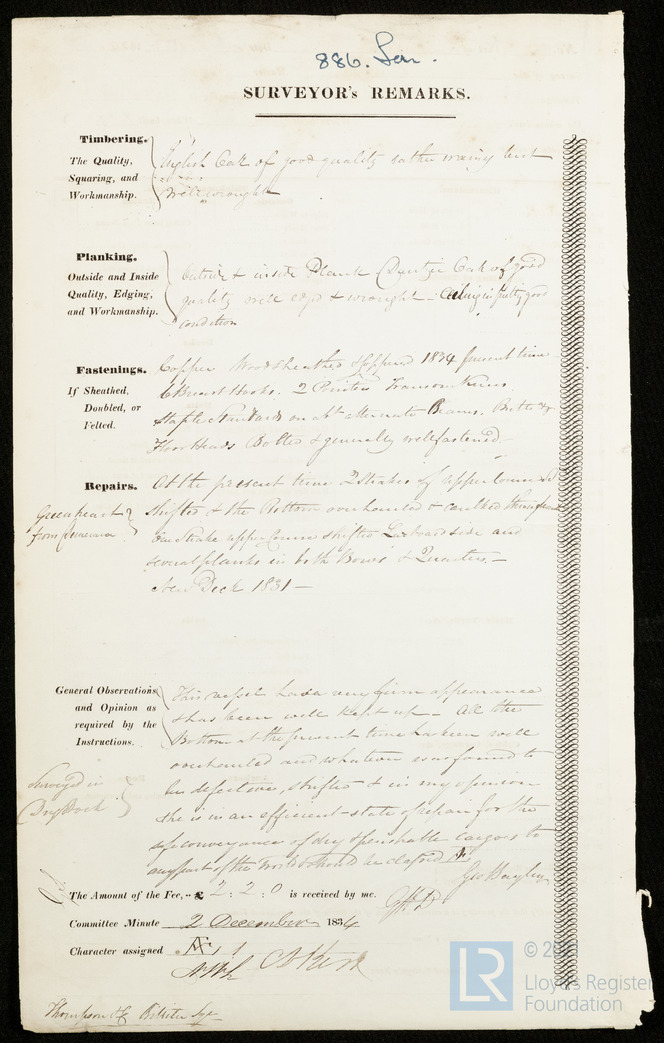 886. Lon.
SURVEYOR's REMARKS.
Timbering.
The Quality,
Squaring, and
Workmanship.
English Oak of good quality rather waney but
well wrought
Planking.
Outside and Inside
Quality, Edging,
and Workmanship.
Outside & inside Plank Oak of good
quality well edged & wrought - Ceiling in pretty good
condition
Fastenings.
If Sheathed,
Doubled, or
Felted.
Copper Wood Sheathed & Coppered 1834 present time
6 Breast Hooks. 2 Pointers Transom Knees.
Staple Standards on abt alternate Beams. Butts &
Floor Heads Bolted & generally well fastened.
Repairs.
Greenheart
from Demerara
At the present time 2 Strakes of upper
shifted & the Bottom overhauled & caulked throughout
One Strake upper shifted Larboard side and
several planks in both Bows & Quarters -
New Deck 1831 -
General Observations
and Opinion as
required by the
Instructions.
Surveyed in
Dry Dock
This vessel has a very firm appearance
& has been well kept up - All the
Bottom at the present time has been well
overhauled and whatever was found to
be defective, shifted & in my opinion
she is in an efficient state of repair for the
safe conveyance of dry & perishable Cargoes to
any part of the World & should be classed Æ
Geo Bayley
The Amount of the Fee, £ 2 : 2 : 0 is received by me.
Committee Minute 2 December 1834
Character assigned Æ 1
Thompson & Billiter Sqe
LR
© 20
Lloyd's Register
Foundation